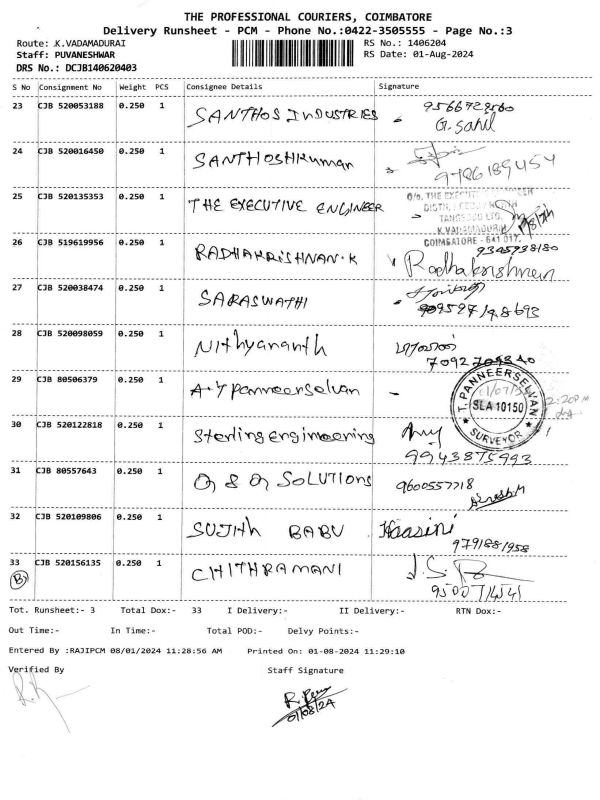 THE PROFESSIONAL COURIERS, COIMBATORE
Delivery Runsheet - PCM - Phone No.:0422-3505555 - Page No.:3
Route: .K.VADAMADURAI
RS No.: 1406204
Staff: PUVANESHWAR
RS Date: 01-Aug-2024
DRS No.: DCJB140620403
S No Consignment No Weight PCS Consignee Details Signature
23 CJB 520053188 0.250 1 SANTHOS INDUSTRIES
G. Sahil
24 CJB 520016450 0.250 1 SANTHOSHKumar
9786189454
25 CJB 520135353 0.250 1 THE EXECUTIVE ENGINEER
O/o. THE EXECUTIVE ENGINEER
TANGEDCO LTD,
K.VADAMADURAI
COIMBATORE - 641 017.
26 CJB 519619956 0.250 1 RADHAKRISHNAN.K
Radhakrishnan
27 CJB 520038474 0.250 1 SARASWATHI
28 CJB 520098059 0.250 1 Nithyananth
7092709340
29 CJB 80506379 0.250 1 A.T panneerselvan -
T. PANNEERSELVAN
SLA 10150
SURVEYOR
2:20PM
30 CJB 520122818 0.250 1 Sterling engineering
9943875993
31 CJB 80557643 0.250 1 & SOLUTIONS 9600557718
32 CJB 520109806 0.250 1 SUJITH BABU Haasini
9791881958
33 CJB 520156135 0.250 1 CHITHRAMANI
B
9500714541
Tot. Runsheet:- 3 Total Dox:- 33 I Delivery:- II Delivery:- RTN Dox:-
Out Time:- In Time:- Total POD:- Delvy Points:-
Entered By :RAJIPCM 08/01/2024 11:28:56 AM Printed On: 01-08-2024 11:29:10
Verified By Staff Signature
01/08/24